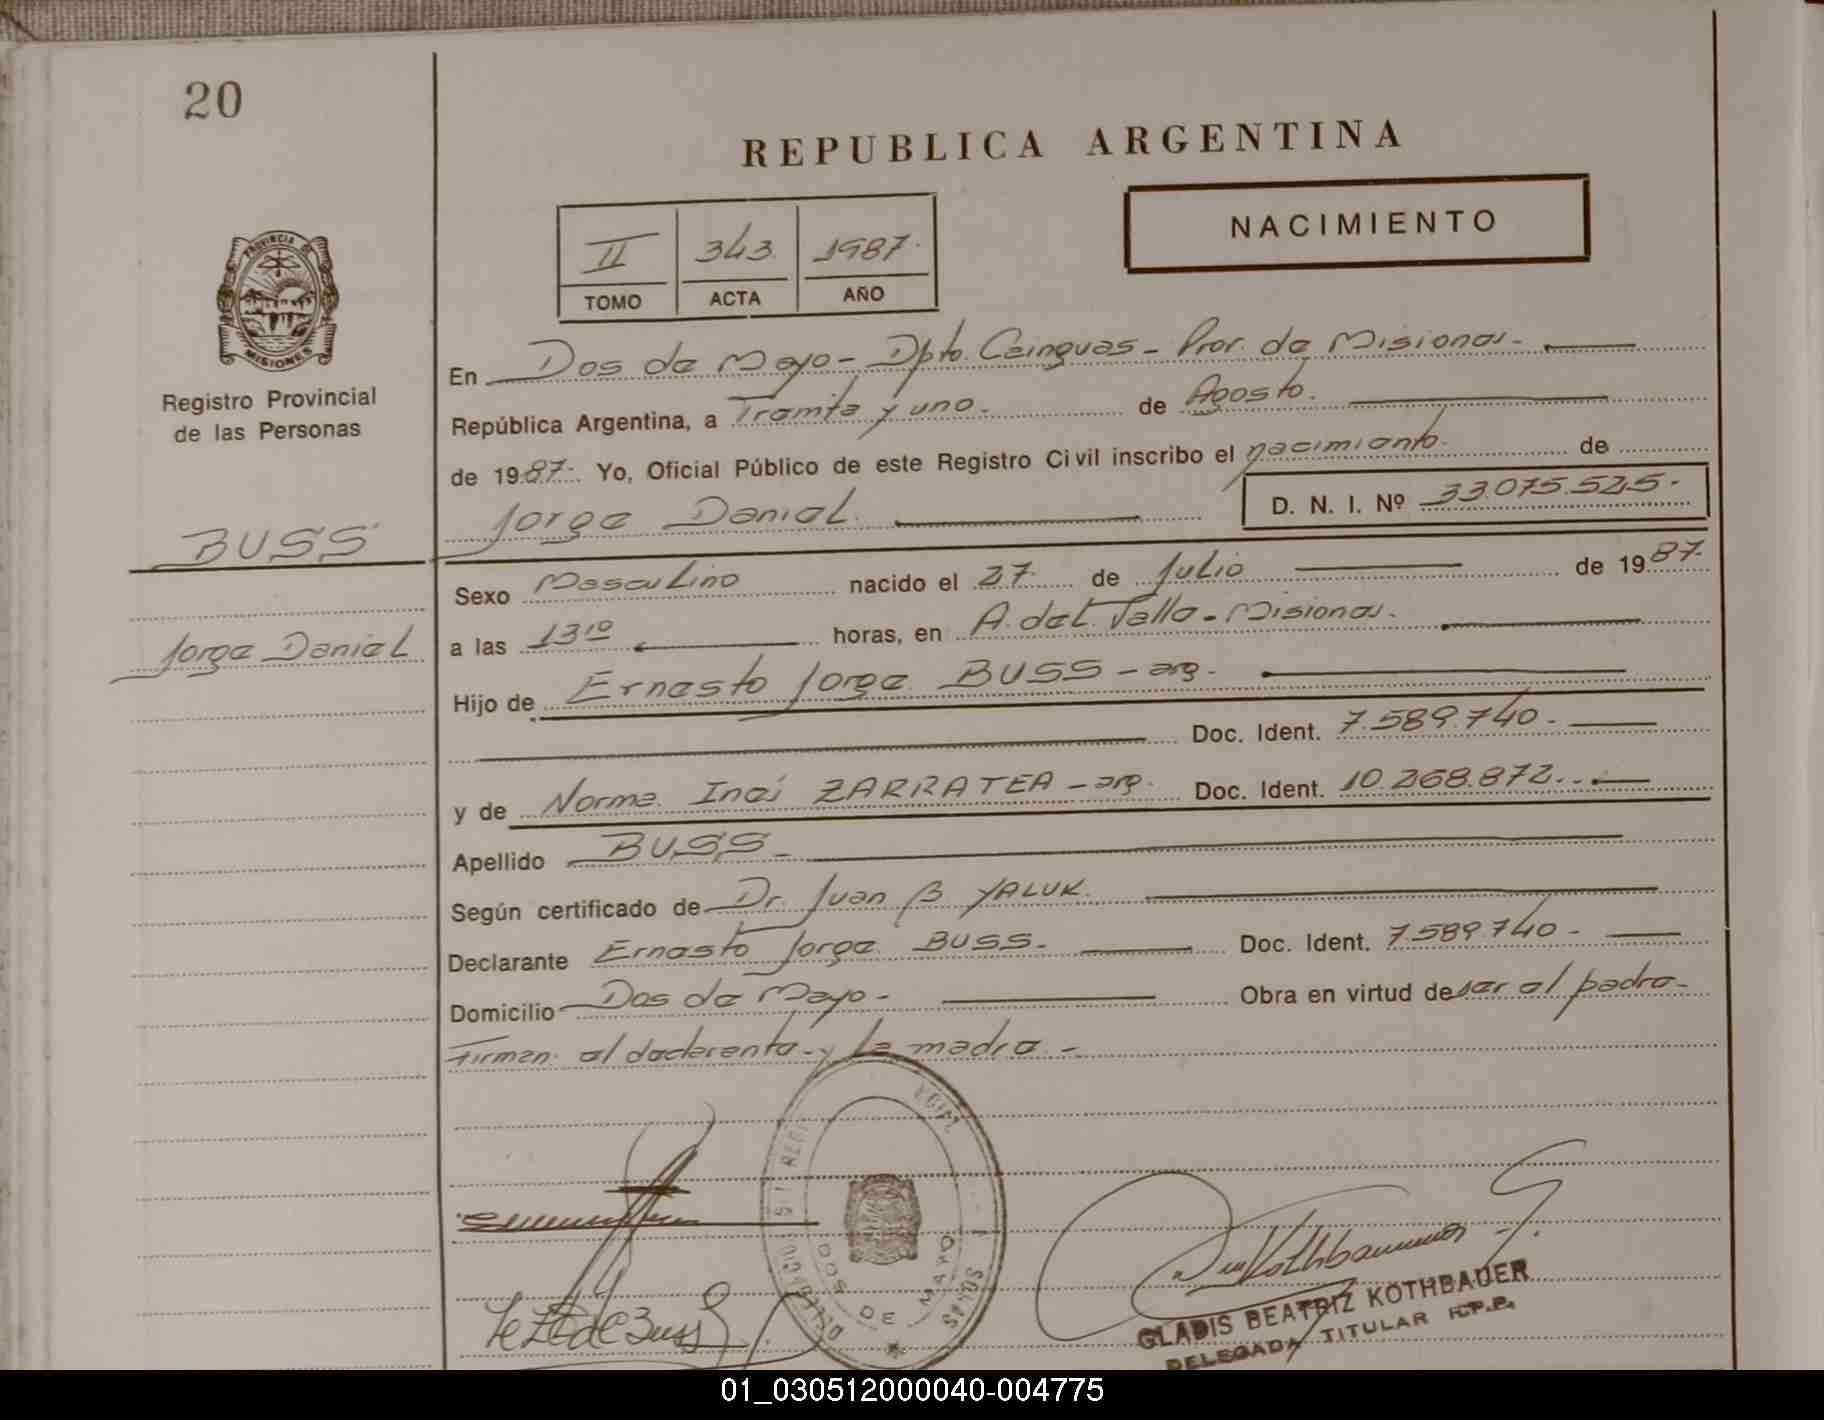 20
REPUBLICA ARGENTINA
NACIMIENTO
II 343 1987.
TOMO ACTA AÑO
PROVINCIA DE
MISIONES
Registro Provincial
de las Personas
En Dos de Mayo - Dpto. Cainguas - Prov. de Misiones. -
República Argentina, a Treinta y uno. de Agosto.
de 1987. Yo, Oficial Público de este Registro Civil inscribo el nacimiento. de
Jorge Daniel. D. N. I. Nº 33.075.525.-
BUSS
Jorge Daniel
Sexo Masculino nacido el 27. de Julio de 1987.
a las 13¹⁰ horas, en A. del Valle - Misiones.
Hijo de Ernesto Jorge BUSS - arg.
Doc. Ident. 7.589.740.-
y de Norma Inés ZARRATEA - arg. Doc. Ident. 10.268.872.
Apellido BUSS -
Según certificado de Dr. Juan B YALUK.
Declarante Ernesto Jorge BUSS. Doc. Ident. 7.589.740 -
Domicilio Dos de Mayo - Obra en virtud de ser el padre -
Firman: el declarante - y la madre. -
DOS DE MAYO
de Buss
GLADIS BEATRIZ KOTHBAUER
DELEGADA TITULAR R.P.P.
01_030512000040-004775